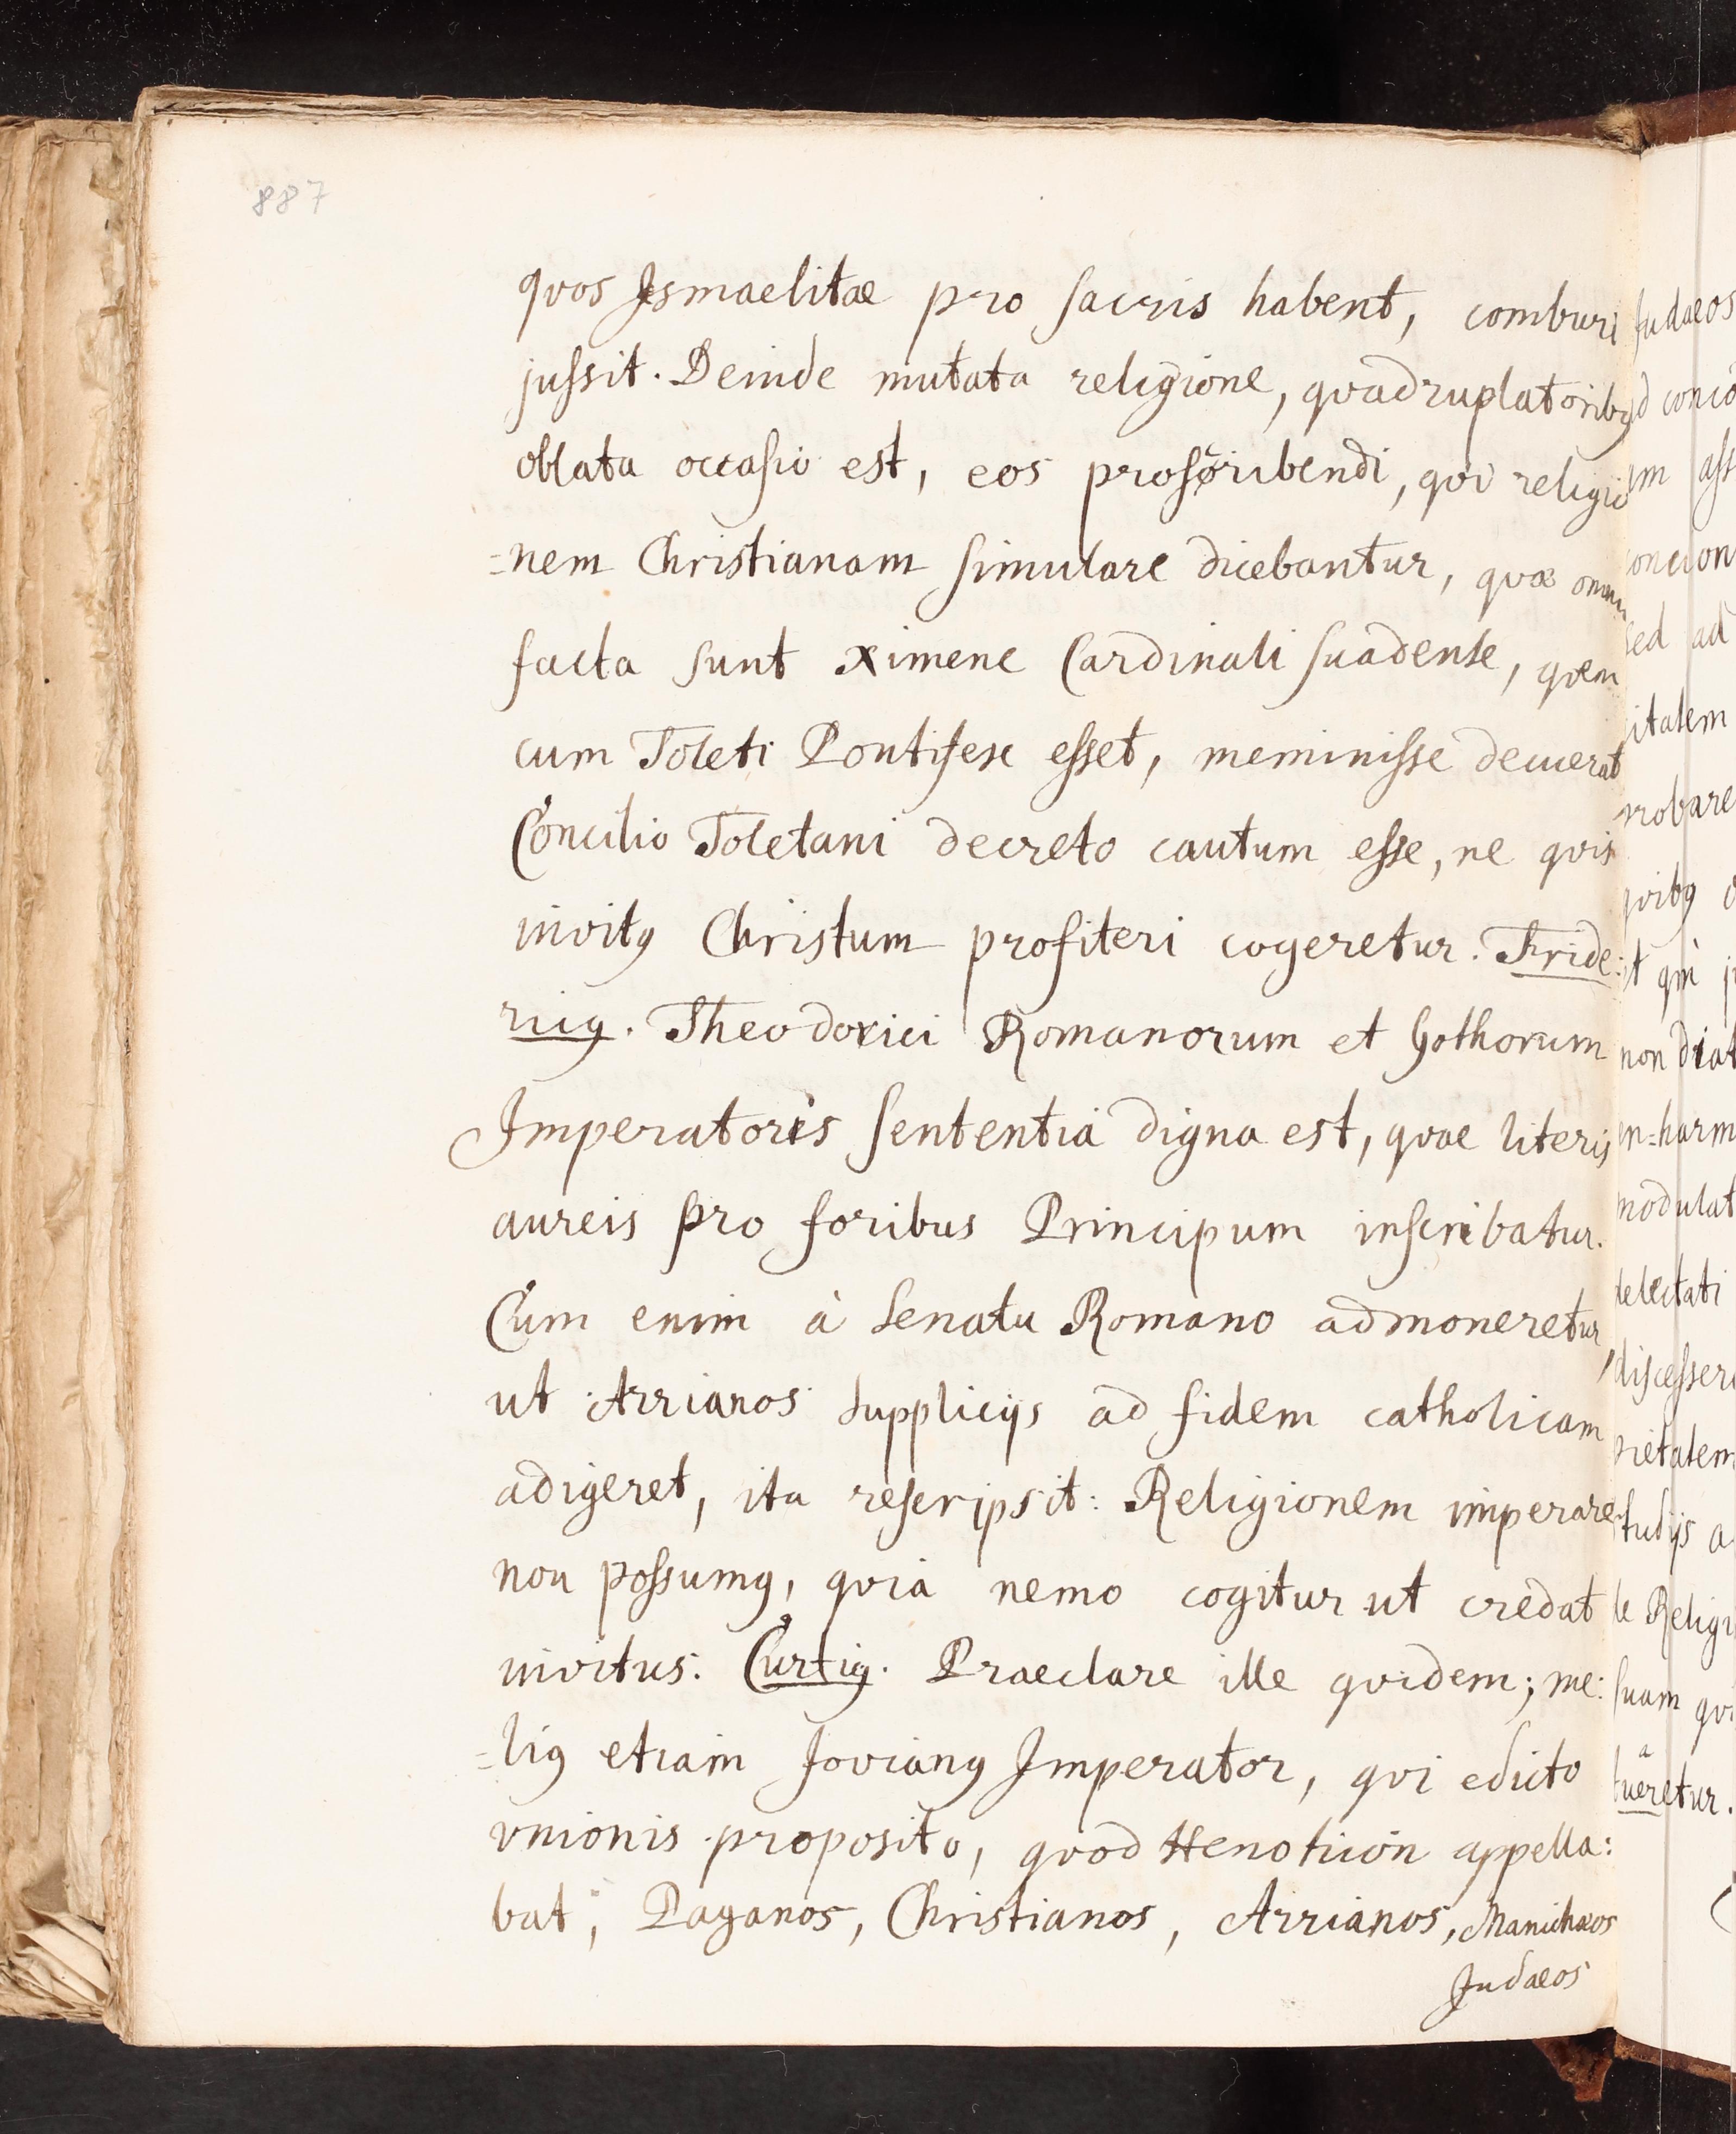 887
qvos Jsmaelitae pro sacris habent, comburi
jussit. Deinde mutata religione, qvadruplatoribꝰ
oblata occasio est, eos proscribendi, qvi religio
=nem Christianam simulare dicebantur, qvae omnia
facta sunt Ximene Cardinali suadente, qvem
cum Toleti Pontifex esset, meminisse decuerat
Concilio Toletani decreto cautum esse, ne qvis
invitꝰ Christum profiteri cogeretur. Fride:
ricꝰ. Theodorici Romanorum et Gothorum
Imperatoris sententia digna est, qvae literis
aureis pro foribus Principum inscribatur.
Cum enim à Senatu Romano admoneretur,
ut Arrianos supplicijs ad fidem catholicam
adigeret, ita rescripsit: Religionem imperare
non possumꝰ, qvia nemo cogitur ut credat
invitus. Curtiꝰ. Praeclare ille qvidem; me:
=liꝰ etiam Jovianꝰ Imperator, qvi edicto
vnionis proposito, qvod Henoticon appella:
bat, Paganos, Christianos, Arrianos, Manichaeos
Judaeos